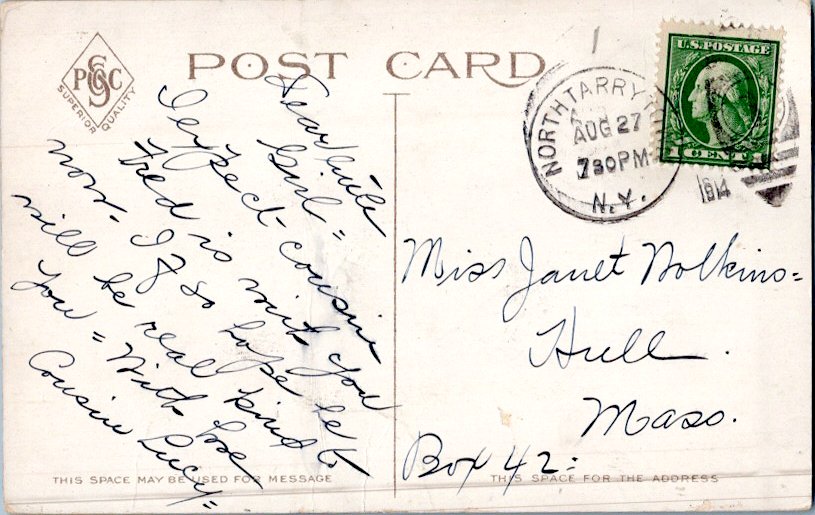 POST CARD
PCSCO
SUPERIOR QUALITY
Dear little
Girl =
I expect cousin
Fred is with you
now - If so hope he
will be real kind to
you = With love
Cousin Lucy =
THIS SPACE MAY BE USED FOR MESSAGE
NORTH TARRYTOWN
AUG 27
7 30 PM
N.Y.
1914
U.S. POSTAGE
1 CENT 1
Miss Janet Wolkins =
Hull.
Mass.
Box 42 =
THIS SPACE FOR THE ADDRESS